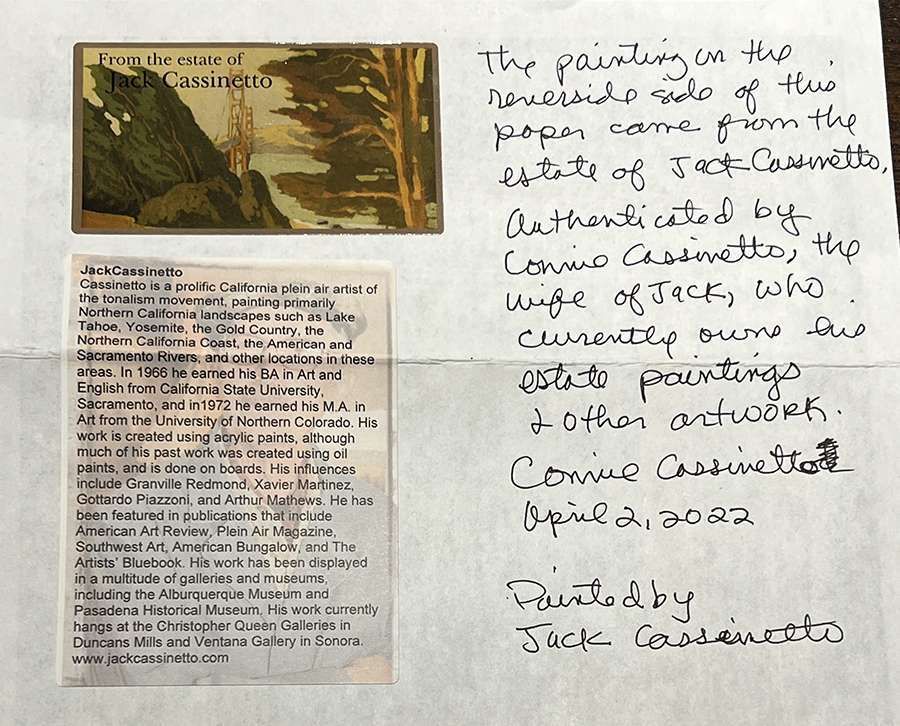 From the estate of
Jack Cassinetto
JackCassinetto
Cassinetto is a prolific California plein air artist of
the tonalism movement, painting primarily
Northern California landscapes such as Lake
Tahoe, Yosemite, the Gold Country, the
Northern California Coast, the American and
Sacramento Rivers, and other locations in these
areas. In 1966 he earned his BA in Art and
English from California State University,
Sacramento, and in1972 he earned his M.A. in
Art from the University of Northern Colorado. His
work is created using acrylic paints, although
much of his past work was created using oil
paints, and is done on boards. His influences
include Granville Redmond, Xavier Martinez,
Gottardo Piazzoni, and Arthur Mathews. He has
been featured in publications that include
American Art Review, Plein Air Magazine,
Southwest Art, American Bungalow, and The
Artists' Bluebook. His work has been displayed
in a multitude of galleries and museums,
including the Alburquerque Museum and
Pasadena Historical Museum. His work currently
hangs at the Christopher Queen Galleries in
Duncans Mills and Ventana Gallery in Sonora.
www.jackcassinetto.com
The painting on the
reverside side of this
paper came from the
estate of Jack Cassinetto.
Authenticated by
Connie Cassinetto, the
wife of Jack, who
currently owns his
estate paintings
& other artwork.
Connie Cassinetto
April 2, 2022
Painted by
Jack Cassinetto